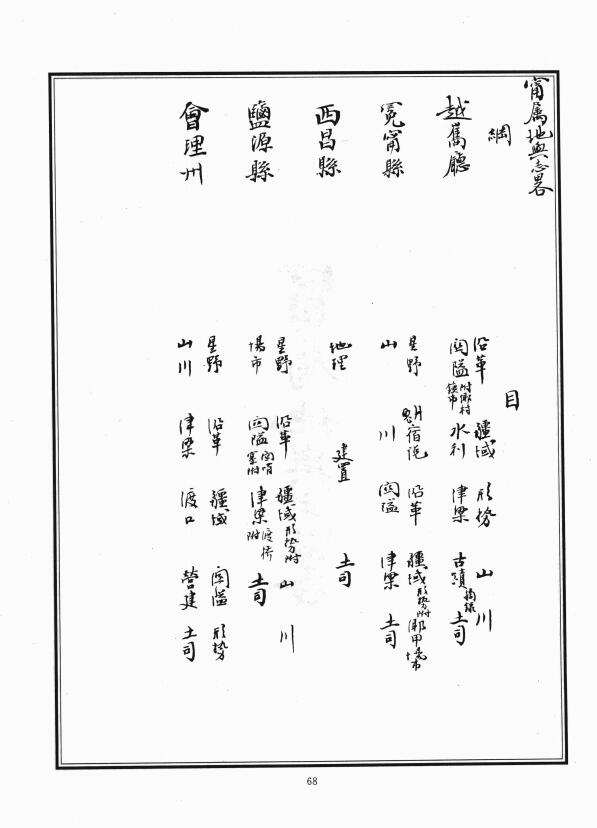 甯属地輿志畧
綱
目
越嶲廳
沿革 疆域 形勢 山川
関隘附鄉村鎮市 水利 津梁 古蹟摘錄 土司
冕甯縣
星野 觜宿說 沿革 疆域形勢附 鄉甲
山川 関隘 津梁 土司
西昌縣
地理 建置 土司
鹽源縣
星野 沿革 疆域形勢附 山川
場市 関隘 津梁 土司
會理州
星野 沿革 疆域 関隘 形勢
山川 津梁 渡口 營建 土司
68